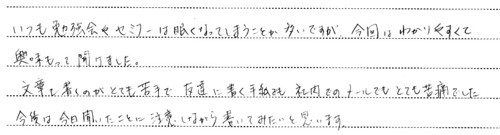 いつも勉強会やセミナーは眠くなってしまうことが多いですが、今回はわかりやすくて
興味もって聞けました。
文章を書くのがとても苦手で友達に書く手紙でも社内でのメールでもとても苦痛でした
今後は今日聞いたことに注意しながら書いてみたいと思います